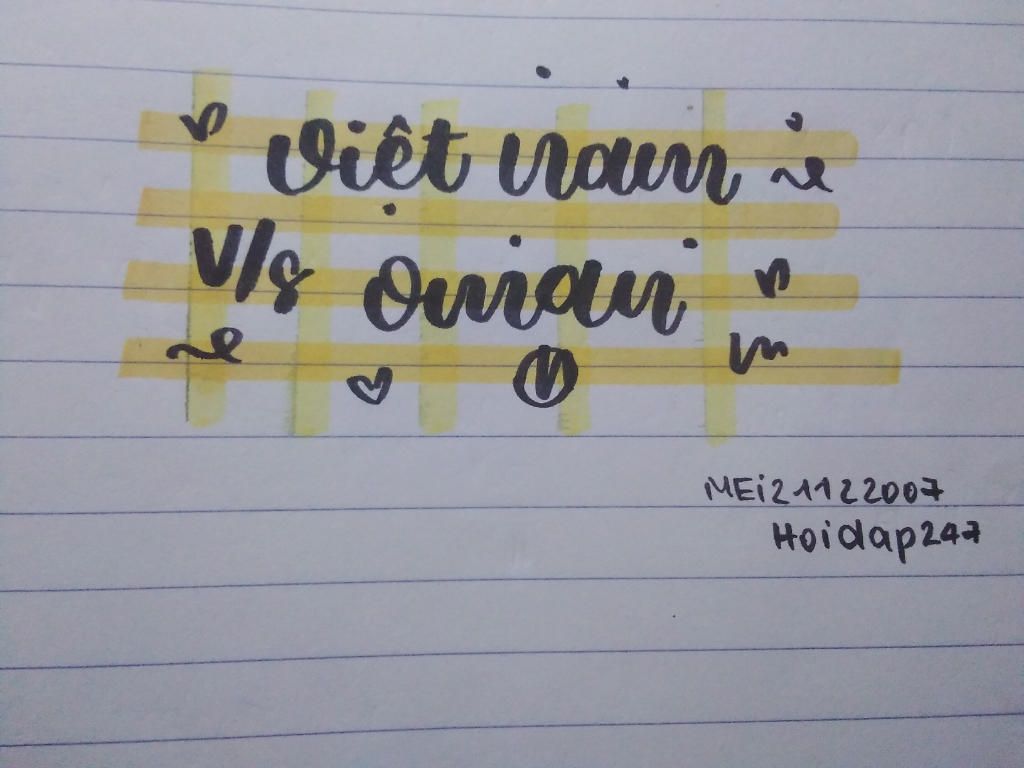 việt nam
V/s Oman
MEi21122007
Hoidap247